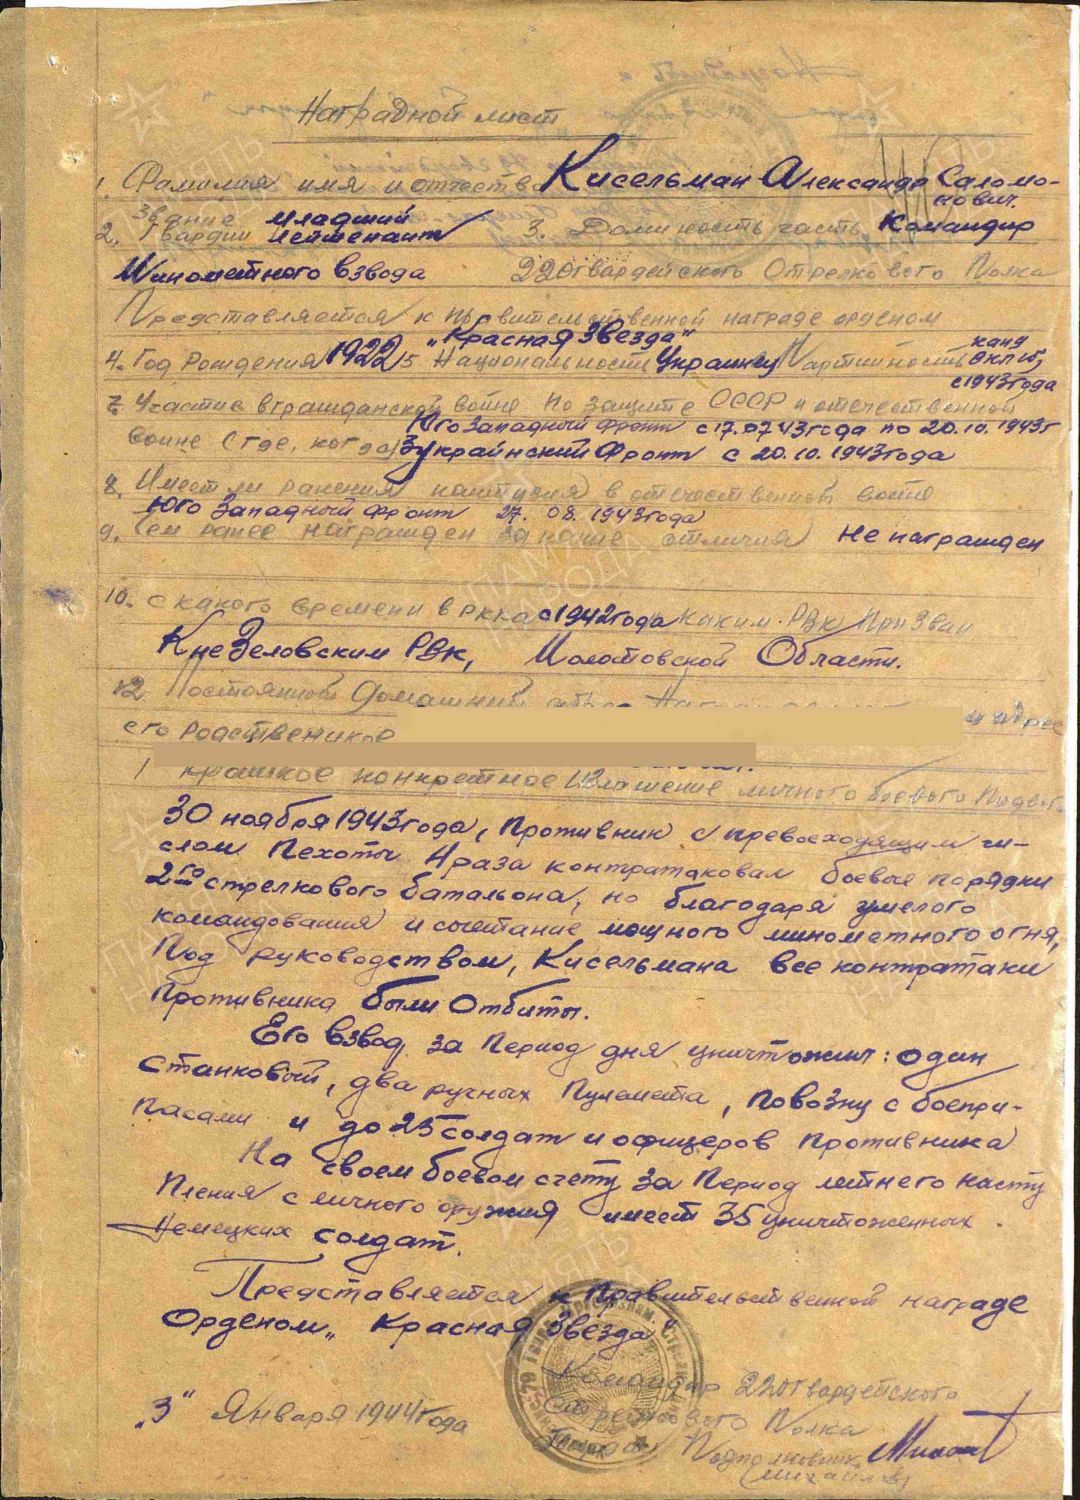 Наградной лист
1. Фамилия имя и отчество Кисельман Александр Саломо-
нович.
2. Звание Гвардии младший лейтенант 3. Должность часть Командир
Минометного взвода 220 гвардейского Стрелкового Полка
Представляется к правительственной награде орденом
„Красная Звезда"
4. Год Рождения 1922 5 Национальность Украинец Партийность канд
ВКП(б)
с 1943 года
7. Участие в гражданской войне по защите СССР и отечественной
войне (где, когда) Юго Западный фронт с 17.07 43 года по 20.10.1943г
3 украинский Фронт с 20.10.1943 года
8. Имеет ли ранения контузия в отечественной войне
Юго Западный фронт 27.08.1943 года
9. Чем ранее награжден за какие отличия Не награжден
10. с какого времени в РККА с 1942 года каким РВК Призван
РВК, Молотовской Области.
12. Постоянной Домашний и адрес
его родственике
1 краткое конкретное личного боевого Подвига
30 ноября 1943 года, Противник с превосходящим чи-
слом Пехоты 4 раза контратаковал боевые порядки
2го стрелкового батальона, но благодаря умелого
командования и сочетание мощного минометного огня,
Под руководством, Кисельмана все контратаки
противника были Отбиты.
Его взвод за Период дня уничтожил: один
станковый, два ручных Пулемета, повозку с боепри-
пасами и до 25 солдат и офицеров противника
На своем боевом счету за Период летнего насту
Пления с личного оружия имеет 35 уничтоженных
Немецких солдат.
Представляется к Правительственной награде
Орденом „Красная Звезда"
Командир 220 Гвардейского
Стрелкового Полка
„3" Января 1944 года
Гвардии Подполковник
(Михайлов)